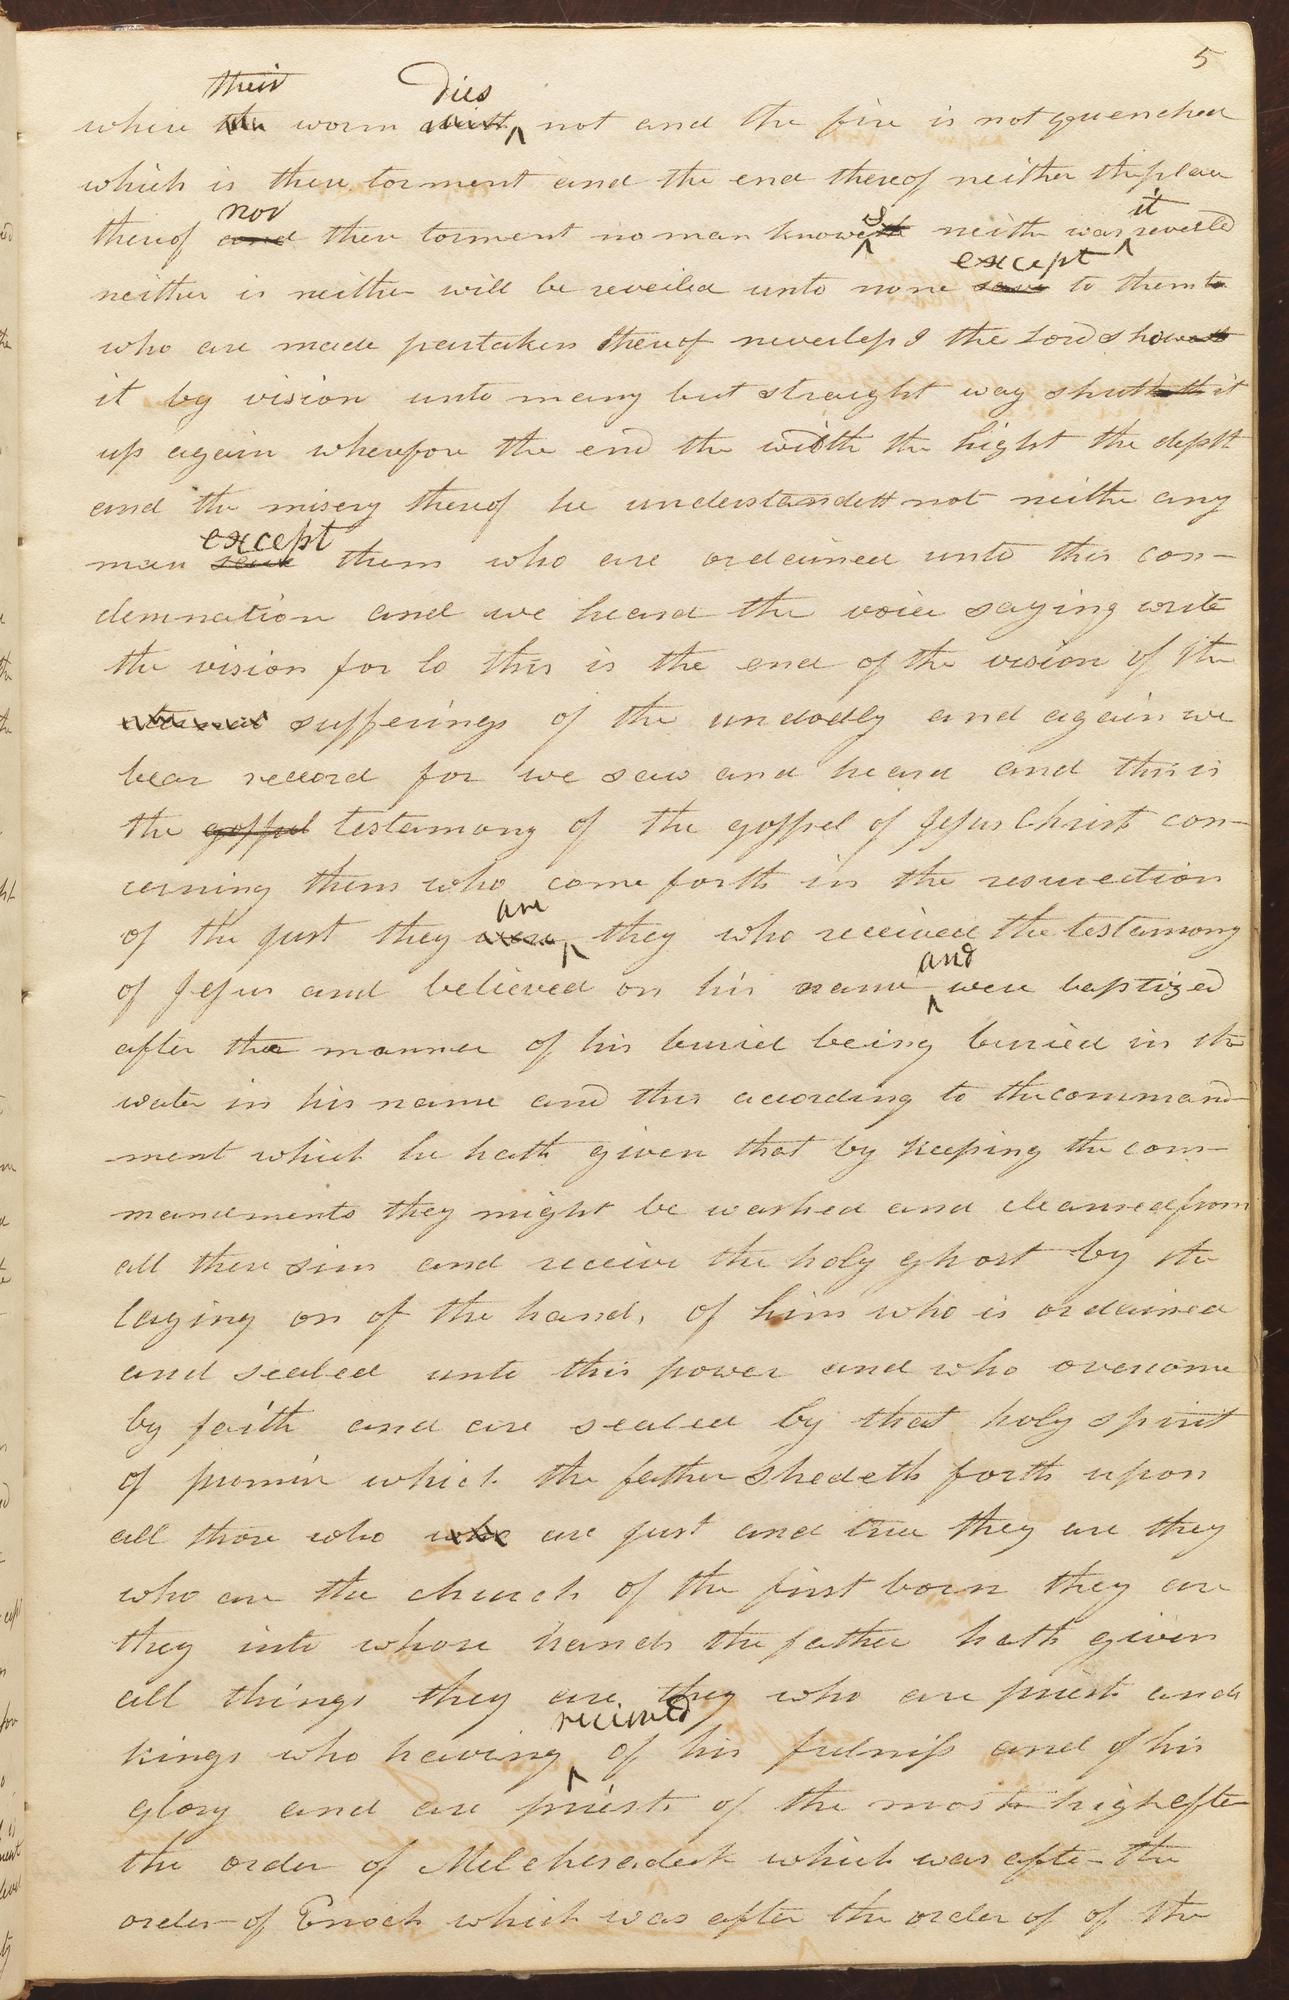 5
where <s>the</s> their worm <s>dieth</s> Dies not and the fire is not quenched
which is there torment and the end thereof neither the place
thereof <s>and</s> nor there torment no man knowes<s>th</s> neithe was it reveiled
neither is neither will be reveiled unto none <s>save</s> except to them to
who are made partakers thereof neverless I the Lord show<s>eth</s>
it by vision unto many but straight way shut<s>teth</s> it
up again wherefore the end the width the hight the depth
and the misery thereof he understandeth not neithe any
man <s>save</s> except them who are ordained unto this con-
demnation and we heard the voice saying write
the vision for lo this is the end of the vision of the
sufferings of the undodly and again we
bear record for we saw and heard and this is
the <s>gospel</s> testamony of the gospel of Jesus Christ con-
cerning them who come forth in the resurection
of the just they <s>were</s> are they who received the testamony
of Jesus and believed on his name and were baptized
after the manner of his buriel being buried in the
water in his name and this according to the command-
ment which he hath given that by keeping the com-
mandments they might be washed and cleansed from
all there sins and receive the holy ghost by the
laying on of the hands of him who is ordained
and sealed unto this power and who overcome
by faith and are sealed by that holy spirit
of promise which the father shedeth forth upon
all those who <s>who</s> are just and true they are they
who are the church of the first born they are
they into whose hands the father hath given
all things they are they who are priests and
kings who having received of his fulness and of his
glory and are priests of the most high after
the order of Melchesadeck which was after the
order of Enoch which was after the order of of the